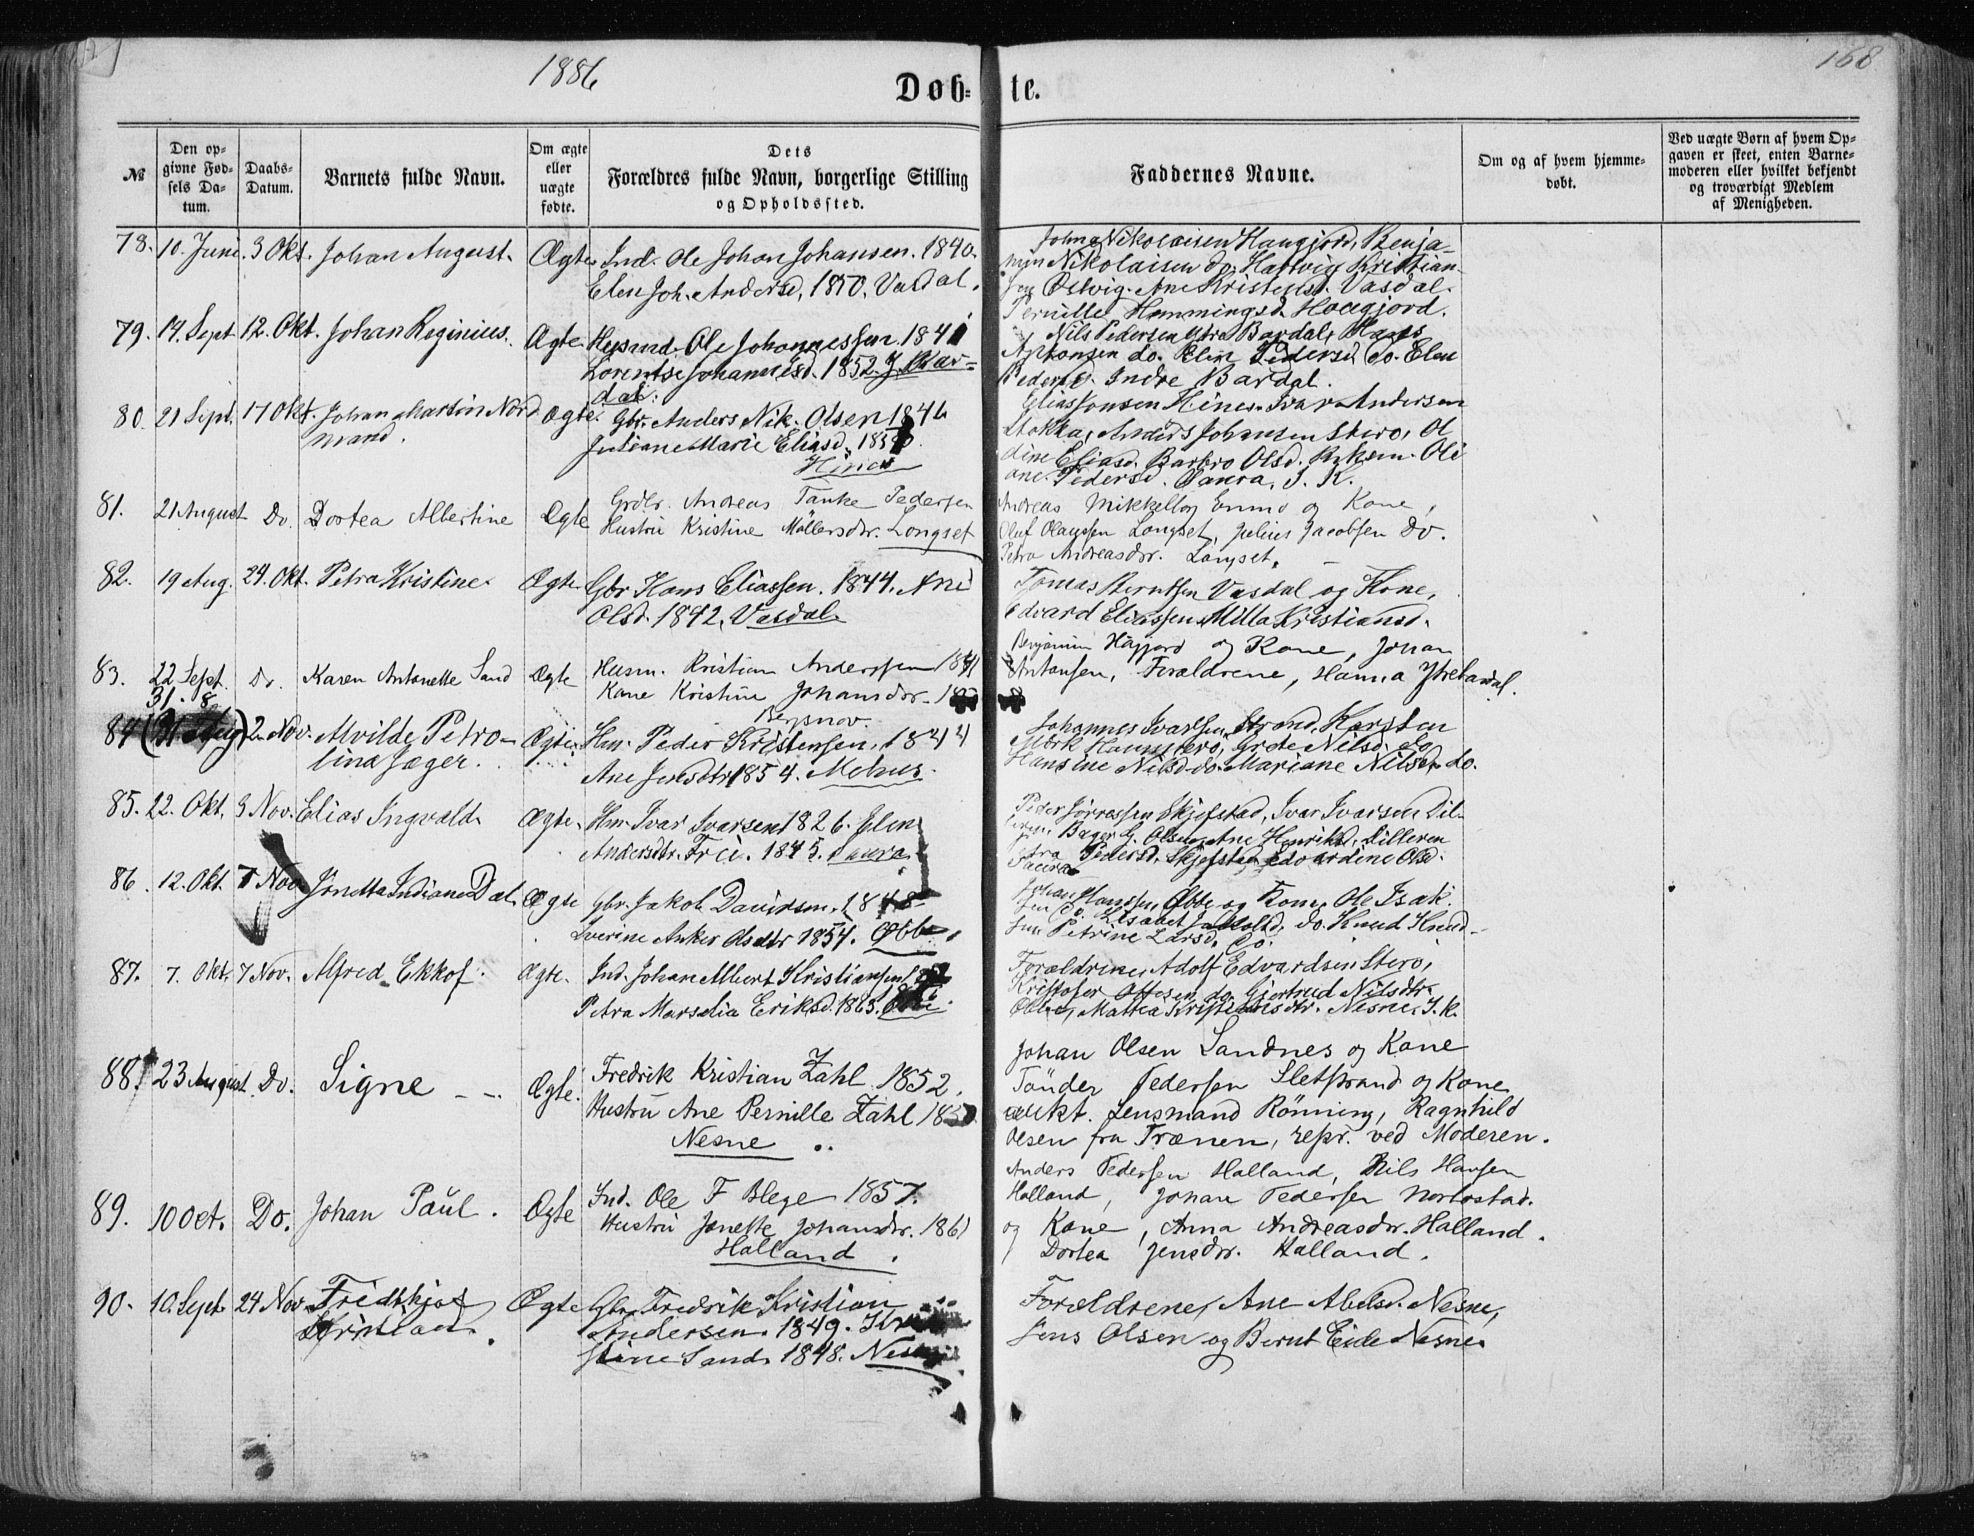 1886
168
Døb-te.
№
Den op-
givne Fød-
sels Da-
tum.
Daabs-
Datum.
Barnets fulde Navn.
Om ægte
eller
uægte
fødte.
Dets
Forældres fulde Navn, borgerlige Stilling
og Opholdssted.
Faddernes Navne.
Om og af hvem hjemme-
døbt.
Ved uægte Børn af hvem Op-
gaven er skeet, enten Barne-
moderen eller hvilket bekjendt
og troværdigt Medlem
af Menigheden.
78. 10. Juni. 3 Okt. Johan August. Ægte Ind. Ole Johan Johansen. 1840.
Elen Joh. Andersd. 1850. Vasdal.
Nikolaisen Haugjord, Benja-
min Nikolaisen do, Hartvig Kristian-
Ane Kristensd. Vasdal.
Pernille Hemmingsd. Hougjord.
79. 14. Sept 12. Okt. Johan Reginius. Ægte Husmd. Ole Johannessen. 1841
Lorentse Johannesd. 1852. J. Bar-
dal.
Nils Pedersen Ytre Bardal, Hans
Antonsen do. Elin Pedersd. do. Elen
Pedersd. Indre Bardal.
80. 21 Sept. 17 Okt. Johan Martin Nord
mand. Ægte. Gbr. Anders Nik. Olsen 1846
Juliane Marie Eliasd.
Hines
Elias Jonsen Hines. Ivar Andersen
Stokka, Anders Johansen Stero, Ol
dine Eliasd. Barbro Olsd. Oli
ane Pedersd. Saura, I. K.
81. 21 August Do. Dortea Albertine Ægte Grdbr. Andreas Tanke Pedersen
Hustru Kristine Möllersdr. Longset
Andreas Mikkelsen og Kone,
Oluf Olaussen Longset, Julius Jacobsen Do.
Petra Andreasdr. Langset.
82. 19 Aug. 24. Okt. Petra Kristine. Ægte Gbr Hans Eliassen. 1844. Ane
Olsd. 1842. Vasdal
Tomas Berntsen Vasdal og Kone,
Edvard Eliassen, Milla Kristiansd.
83. 22 Sept. Do. Karen Antonette Sand Ægte Husm. Kristian Anderssen
Kone Kristine Johansdr.
Benjamin Haggjord og Kone, Johan
Antonsen, Forældrene, Hanna Ytrebardal.
31. 8
84 (31 Aug) 2 Nov. Alvilde Petro-
lina Jæger. Ægte Hm. Peder Kristensen. 1844
Ane Jensdtr 1854.
Johannes Ivarsen Strand, Karsten
Grete Nilsd. do
Hansine Nilsd. do. Mariane Nilsd. do.
85. 22. Okt. 3 Nov. Elias Ingvald. Ægte. Hm. Ivar Ivarsen 1826. Elen
Andersdtr. Frei. 1845. Saura
Skjefstad, Ivar Ivarsen Dil-
Olsen, Ane Henriksd. Dilleren
Pedersd. Skjefstad, Edvardine Olsd.
Saura
86. 12. Okt. 7 Nov. Jonetta Indiane Dal. Ægte Gbr. Jakob Davidsen. 1848
Sverine Anker Olsdtr 1854. Øbbe.
Johan Hansen Øbbe og Kone, Ole Isak-
sen do. Lisabet Jakobsd. do. Knud Knud-
sen Petrine Larsd. do.
87. 7. Okt. 7 Nov. Alfred Ekkof. Ægte. Ind. Johan Albert Kristiansen
Petra Marselia Eriksd. 1863.
Forældrene, Adolf Edvardsen Stero,
Kristofer Ottesen do. Gjertrud Nilsdtr.
Øbbe, Mattea Kristiansdtr. Nesne, I. K.
88. 23 August. Do. Signe Ægte. Fredrik Kristian Zahl 1852.
Hustru Ane Pernille Zahl
Nesne
Johan Olsen Sandnes og Kone
Tönder Pedersen Sletstrand og Kone
Lensmand Rönning, Ragnhild
Olsen fra Trænen, repr. ved Moderen.
89. 10 Oct. Do. Johan Paul. Ægte Ind. Ole F Blege 1857.
Hustru Janette Johansdr. 1861
Halland.
Anders Pedersen Halland, Nils Hansen
Halland, Johan Pedersen
og Kone, Anna Andreasdr. Halland.
Dortea Jensdr. Halland.
90. 10. Sept 24 Nov Fridtkjof
Kristian. Ægte Gbr. Fredrik Kristian
Andersen. 1849. Kri
stine Sand. 1848. Nesne
Forældrene, Ane Abelsd. Nesne,
Jens Olsen og Bernt Eide Nesne.